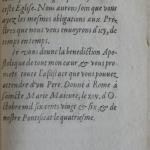 ceste Eglise. Nous aurons son que vous
ayez les mesmes obligations aux Pre-
stres que nous vous enuoyrons d'icy, de
temps en temps.
Je vous donne la benediction Apo-
stolique de tout mon cœur, & vous pro-
mets toute l'assistance que vous pouuez
attendre d'un Pere. Donné à Rome à
saincte Marie Maieure, le xxv. d'O-
ctobre mil six cents vingt & six, & de
nostre Pontificat le quatriesme.